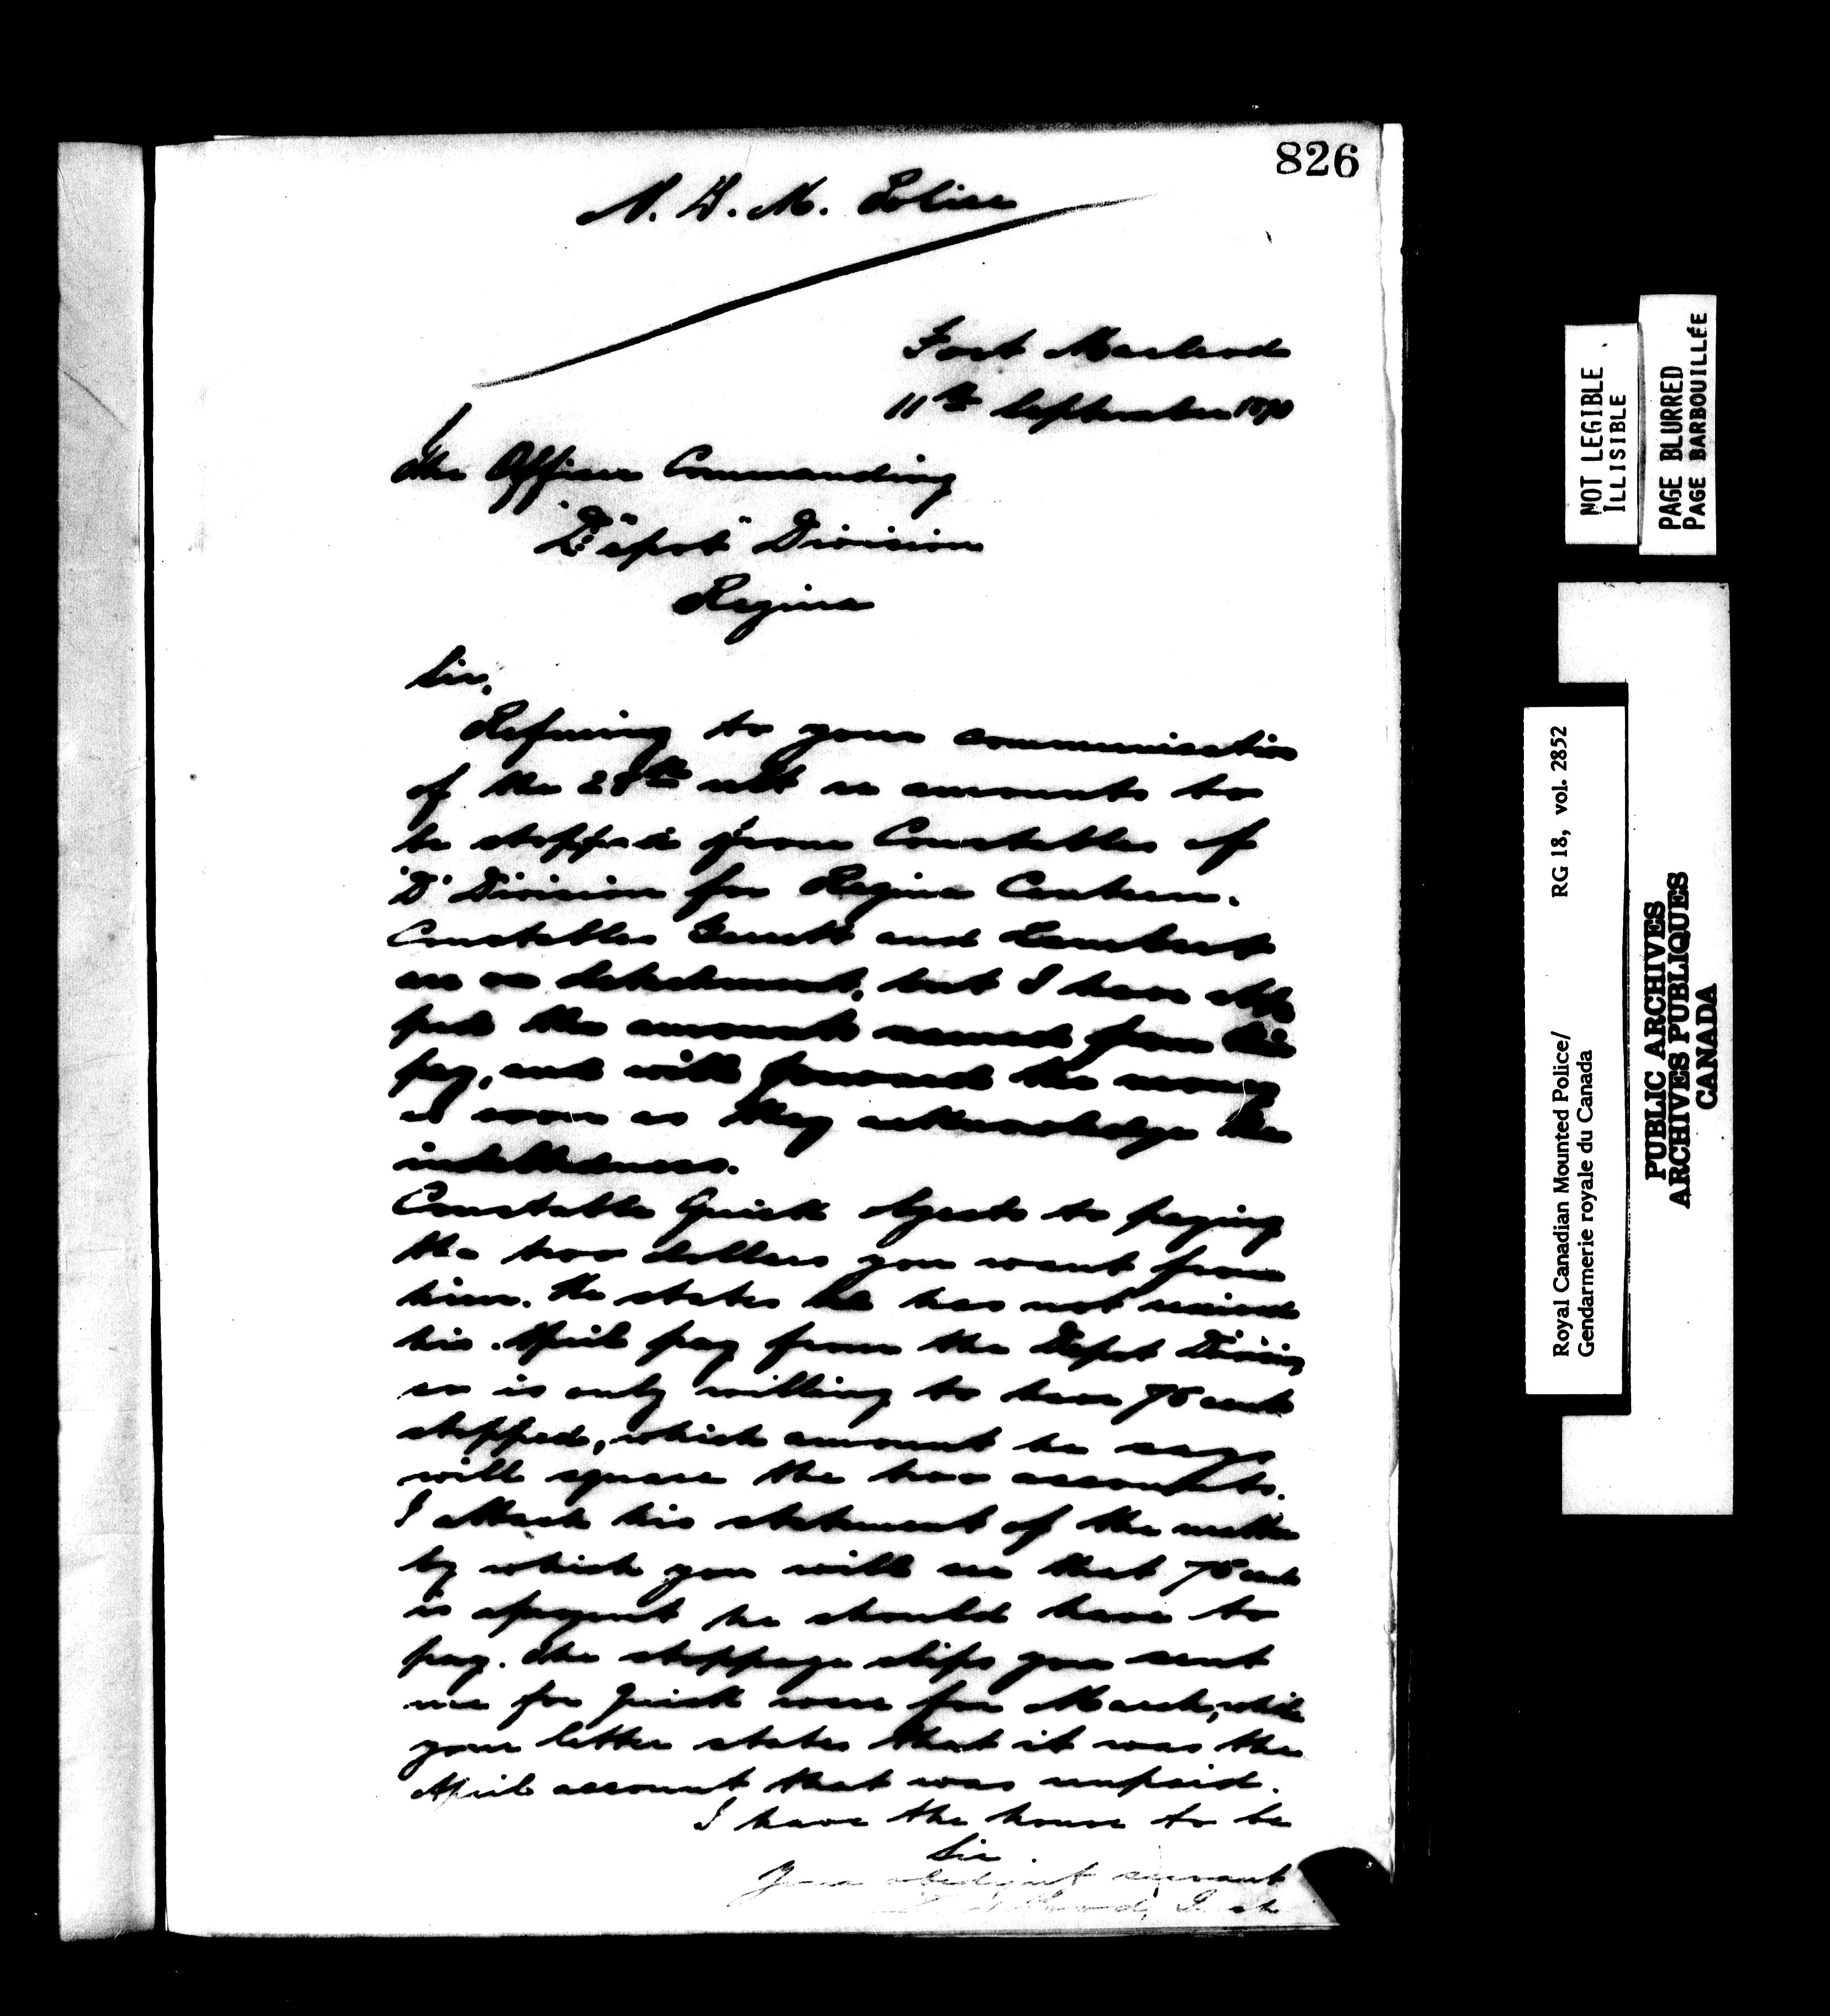 826
N. W. M. Police
Fort Macleod
11th September 1890
The Officer Commanding
"Depot" Division
Regina
Sir,
Refering to your communication
of the 28th ult re amounts to
be stopped from Constables of
"D" Division for Regina Canteen.
Constables and Lambert
are on detachment, but I have stop
ped the amounts named from their
pay, and will forward the money
as soon as they acknowledge the
indebtedness.
Constable Quick objects to paying
the two dollars you want from
him. He states he has not received
his April pay from the Depot Division
so is only willing to have 75 cents
stopped, which amount he says
will square the two accounts.
I attach his statement of the matter
by which you will see that 75 cents
is he should have to
pay. The stoppage slips you sent
me for Quick were for March, while
your letter states that it was the
April account that was unpaid.
I have the honor to be
Sir
Your obedient servant
Wood, Inst
NOT LEGIBLE
ILLISIBLE
PAGE BLURRED
PAGE BARBOUILLÉE
Royal Canadian Mounted Police/ RG 18, vol. 2852
Gendarmerie royale du Canada
PUBLIC ARCHIVES
ARCHIVES PUBLIQUES
CANADA